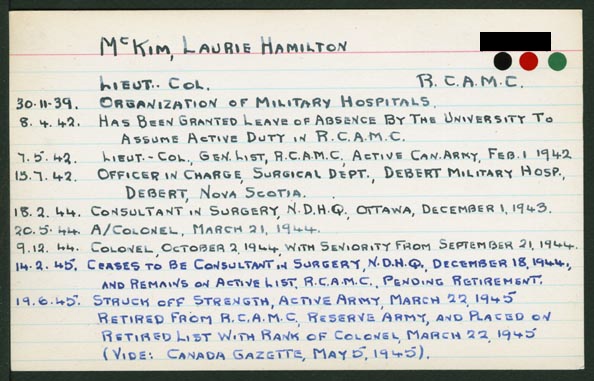 McKim, Laurie Hamilton
Lieut.. Col. R.C.A.M.C.
30.11.39. Organization of Military Hospitals.
8.4.42. Has Been Granted Leave of Absence By The University To
Assume Active Duty in R.C.A.M.C.
7.5.42. Lieut.-Col., Gen. List, R.C.A.M.C, Active Can. Army, Feb. 1 1942
15.7.42. Officer in Charge, Surgical Dept., Debert Military Hosp.,
Debert, Nova Scotia.
18.2.44. Consultant in Surgery, N.D.H.Q., Ottawa, December 1, 1943.
20.5.44. A/Colonel, March 21, 1944.
9.12.44. Colonel, October 2, 1944, with Seniority From September 21, 1944.
14.2.45. Ceases to be Consultant in Surgery, N.D.H.Q., December 18, 1944,
and Remains on Active List, R.C.A.M.C., Pending Retirement.
19.6.45. Struck off Strength, Active Army, March 22, 1945
Retired From R.C.A.M.C, Reserve Army, and Placed on
Retired List With Rank of Colonel, March 22, 1945
(Vide: Canada Gazette, May 5, 1945).